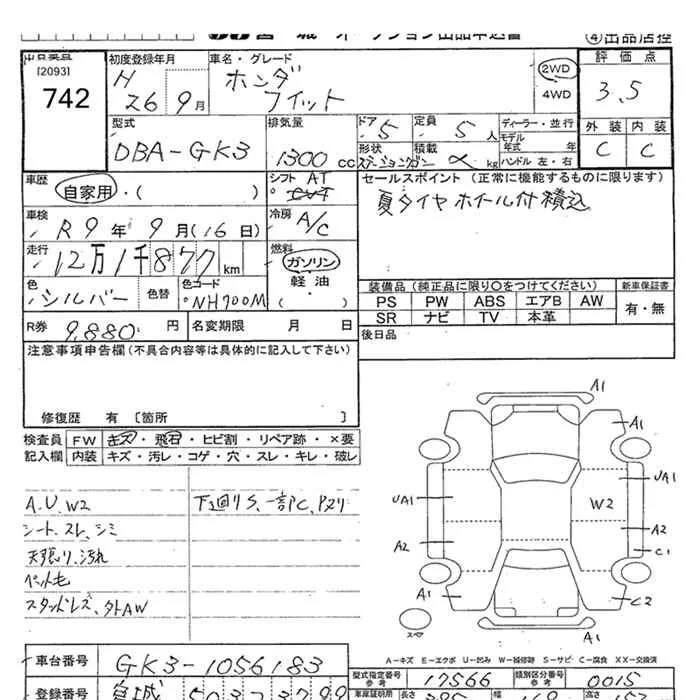 ④出品店控
出品番号
[2093]
742
初度登録年月
H
26 9月
車名・グレード
ホンダ
フィット
2WD
4WD
評価点
3.5
外装 内装
C C
型式
DBA-GK3
排気量
1300 cc
ドア 5
定員 5人
ディーラー・並行
モデル
年式 年
形状
ステーションワゴン
積載 kg
ハンドル 左・右
車歴
自家用・( )
シフト AT
車検
R9年9月(16日)
冷房 A/C
走行
12万1千877km
燃料
ガソリン
軽油
( )
色
シルバー
色替
色コード
NH700M
セールスポイント (正常に機能するものに限ります)
夏タイヤ ホイール付積込
装備品 (純正品に限り○をつけてください)
新車保証書
PS PW ABS エアB AW
SR ナビ TV 本革
有・無
R券 9,880円
名変期限 月 日
後日品
注意事項申告欄 (不具合内容等は具体的に記入して下さい)
修復歴 有 〔箇所 〕
検査員
記入欄
FW キズ・飛石・ヒビ割・リペア跡・×要
内装 キズ・汚レ・コゲ・穴・スレ・キレ・破レ
A.U.W2
シート、スレ、シミ
天張り、汚れ
ペット毛
スタッドレス、外AW
下廻りS、一部C、Pヌリ
A1
A1
UA1
UA1
W2
A2
A2
C1
A1
C2
スペア
A1
A-キズ E-エクボ U-凹み W-補修跡 S-サビ C-腐食 XX-交換済
車台番号 GK3-1056183
型式指定番号
参考
17566
類別区分番号
参考
0015
登録番号 宮城
車庫証明用
参考
長さ
幅
高さ